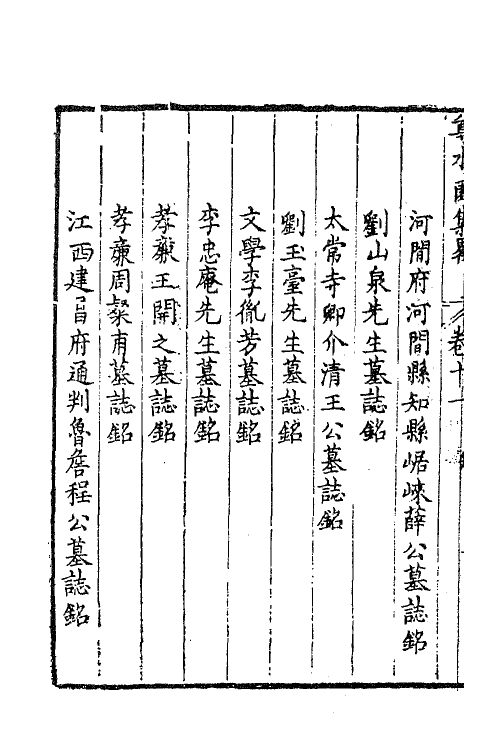 河間府河間縣知縣崌崍薛公墓誌銘
劉山泉先生墓誌銘
太常寺卿介清王公墓誌銘
劉玉臺先生墓誌銘
文學李胤芳墓誌銘
李忠庵先生墓誌銘
孝廉王開之墓誌銘
孝廉周粲甫墓誌銘
江西建昌府通判魯詹程公墓誌銘